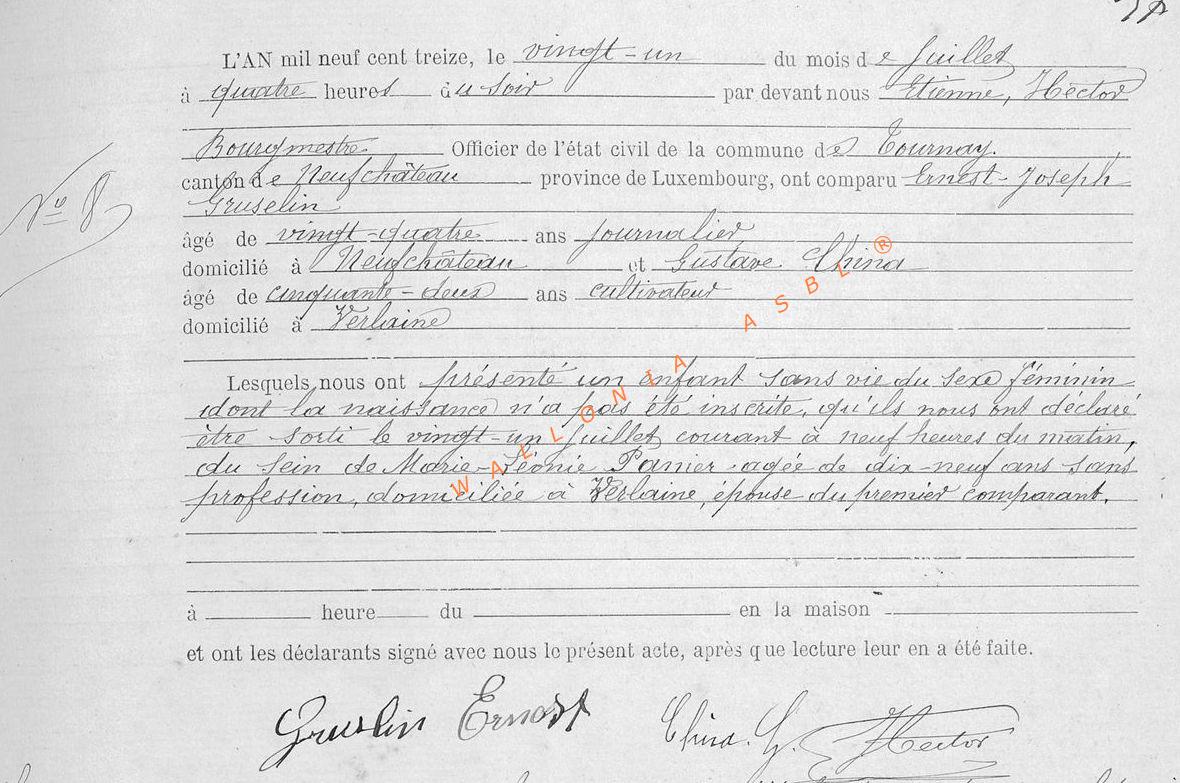 L'AN mil neuf cent treize, le vingt-un du mois de Juillet
à quatre heures du soir par devant nous Etienne, Hector
Bourgmestre Officier de l'état civil de la commune de Tournay.
canton de Neufchâteau province de Luxembourg, ont comparu Ernest-Joseph
Gruselin
N° 8
âgé de vingt-quatre ans journalier
domicilié à Neufchâteau et Gustave China
âgé de cinquante-deux ans cultivateur
domicilié à Verlaine
Lesquels nous ont présenté un enfant sans vie du sexe féminin
dont la naissance n'a pas été inscrite, qu'ils nous ont déclaré
être sorti le vingt-un juillet courant à neuf heures du matin,
du sein de Marie-Léonie Panier agée de dix-neuf ans sans
profession, domiciliée à Verlaine, épouse du premier comparant.
à heure du en la maison
et ont les déclarants signé avec nous le présent acte, après que lecture leur en a été faite.
Gruslin Ernest China. G. Hector
WALLONIA ASBL ®